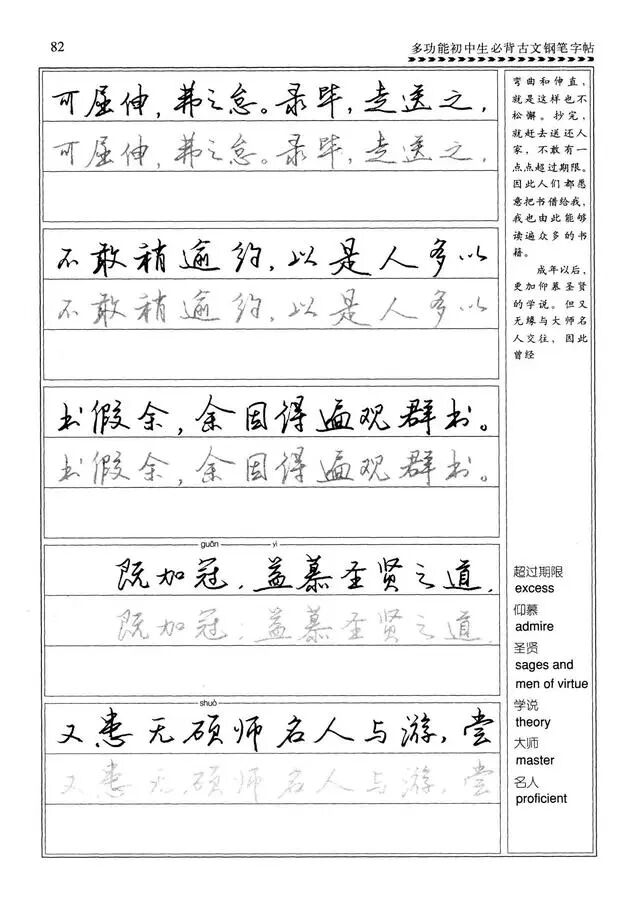 82
多功能初中生必背古文钢笔字帖
可屈伸，弗之怠。录毕，走送之，
可屈伸，弗之怠。录毕，走送之，
不敢稍逾约，以是人多以
不敢稍逾约，以是人多以
书假余，余因得遍观群书。
书假余，余因得遍观群书。
guān yì
既加冠，益慕圣贤之道，
既加冠，益慕圣贤之道，
shuò
又患无硕师名人与游，尝
又患无硕师名人与游，尝
弯曲和伸直，
就是这样也不
松懈。抄完，
就赶去送还人
家，不敢有一
点点超过期限。
因此人们都愿
意把书借给我，
我也由此能够
读遍众多的书
籍。
成年以后，
更加仰慕圣贤
的学说。但又
无缘与大师名
人交往，因此
曾经
超过期限
excess
仰慕
admire
圣贤
sages and
men of virtue
学说
theory
大师
master
名人
proficient